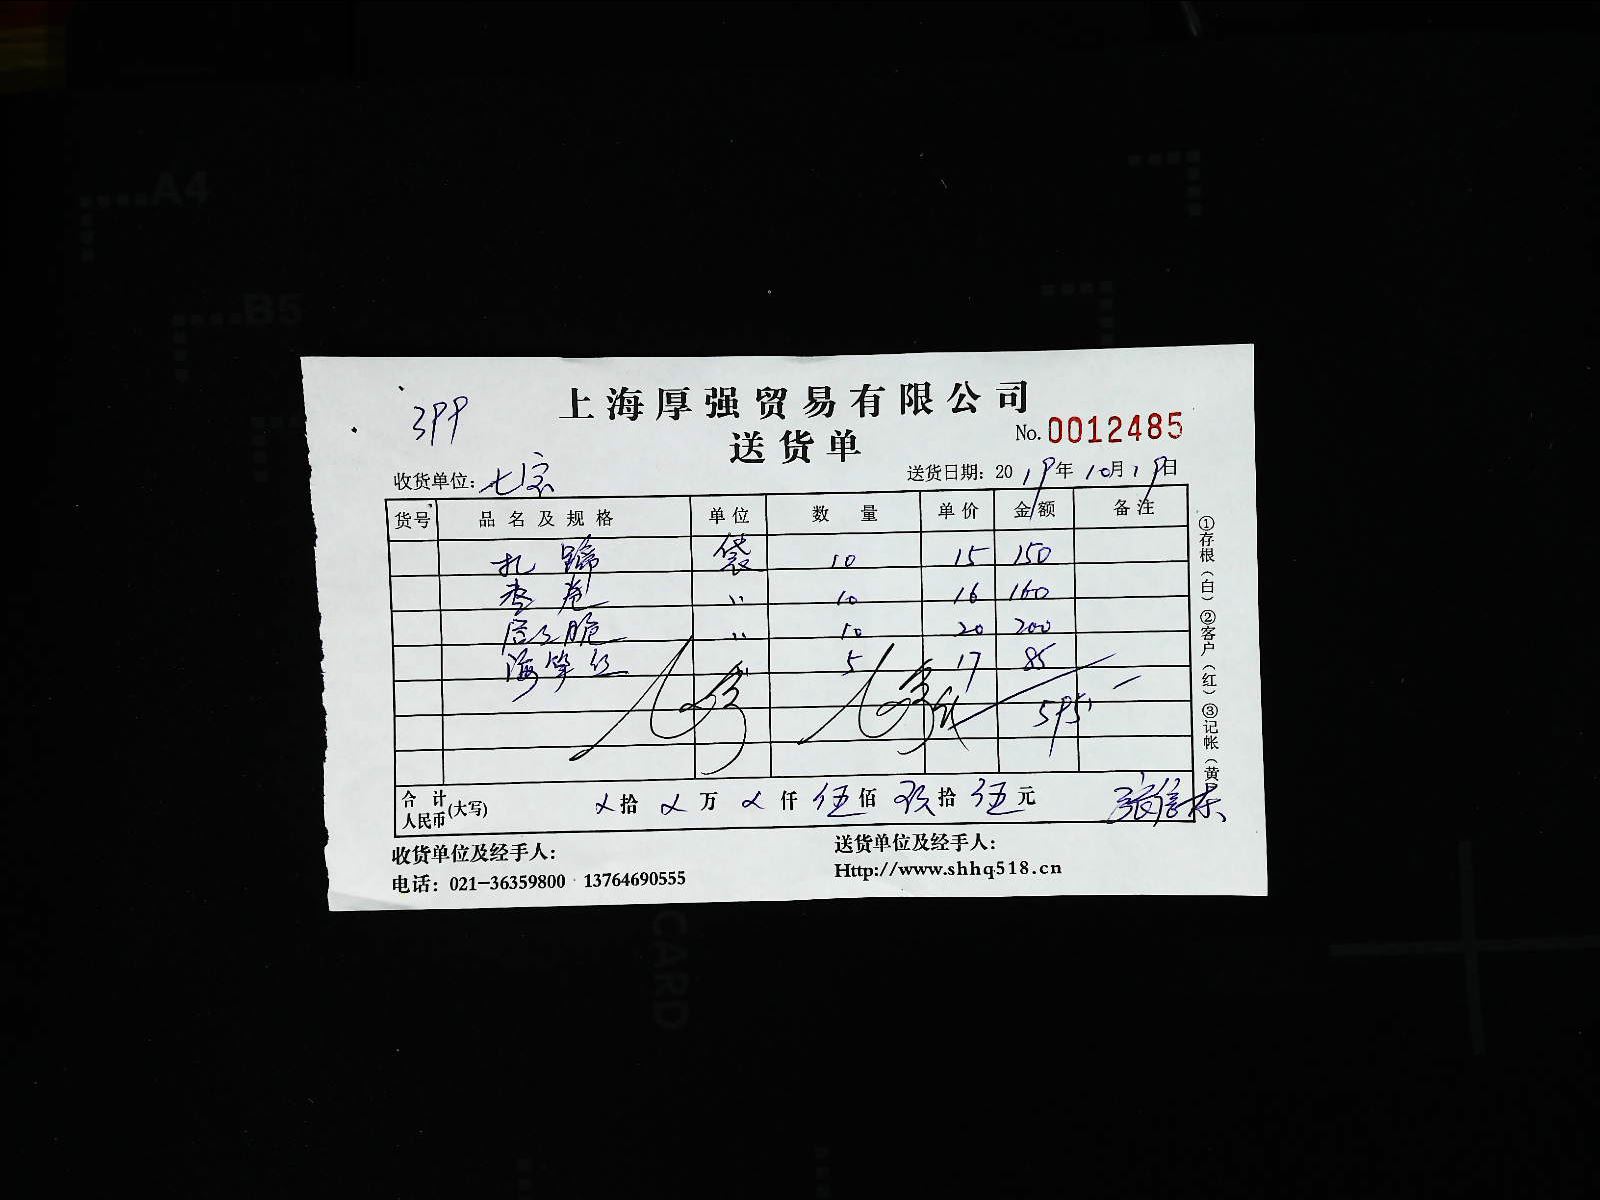 A4
B5
上海厚强贸易有限公司
399
No. 0012485
送货单
收货单位: 七宗
送货日期: 2019年10月19日
货号 品名及规格 单位 数量 单价 金额 备注
扎蹄 袋 10 15 150
素卷 〃 10 16 160
脆 〃 10 20 200
海笋丝 5 17 85
595
合计 人民币 (大写) ㄨ拾ㄨ万ㄨ仟伍佰玖拾伍元
①存根(白)②客户(红)③记帐(黄
收货单位及经手人:
送货单位及经手人:
电话: 021-36359800 13764690555
Http://www.shhq518.cn
CARD